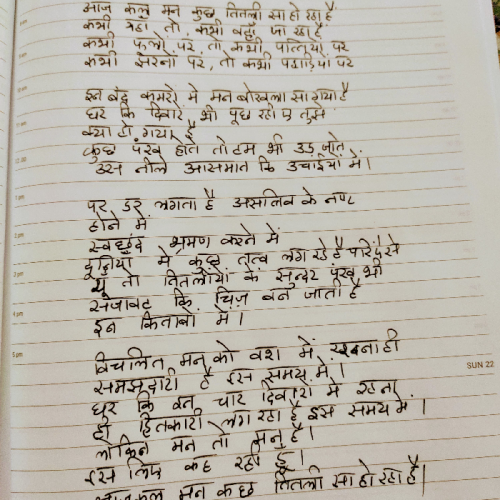 आज कल मन कुछ तितली सा हो रहा है
कभी यहाँ तो, कभी वहाँ जा रहा है
कभी फूलो पर, तो कभी पत्तियों पर
कभी झरनो पर, तो कभी पहाड़ियों पर
इन बंद कमरो मे मन बौखला सा गया है
घर कि दिवारे भी पूछ रही ए तुझे
क्या हो गया है
कुछ पंख होते तो हम भी उड़ जाते
उस नीले आसमान कि उचाईयों में।
पर डर लगता है असतित्व के नष्ट
होने में
स्वछंद भ्रमण करने में
में कुछ तत्व लग रहे है
यू तो तितलीयो के सुन्दर पंख भी
सजावट कि चिज़ बन जाती है
इन किताबो में।
विचलित मन को वश में रखना ही
समझदारी है इस समय में।
घर कि इन चार दिवारो में रहना
ही हितकारी लग रहा है इस समय में।
लेकिन मन तो मन है।
इस लिए कह रही हूँ।
आजकल मन कुछ तितली सा हो रहा है।
SUN 22